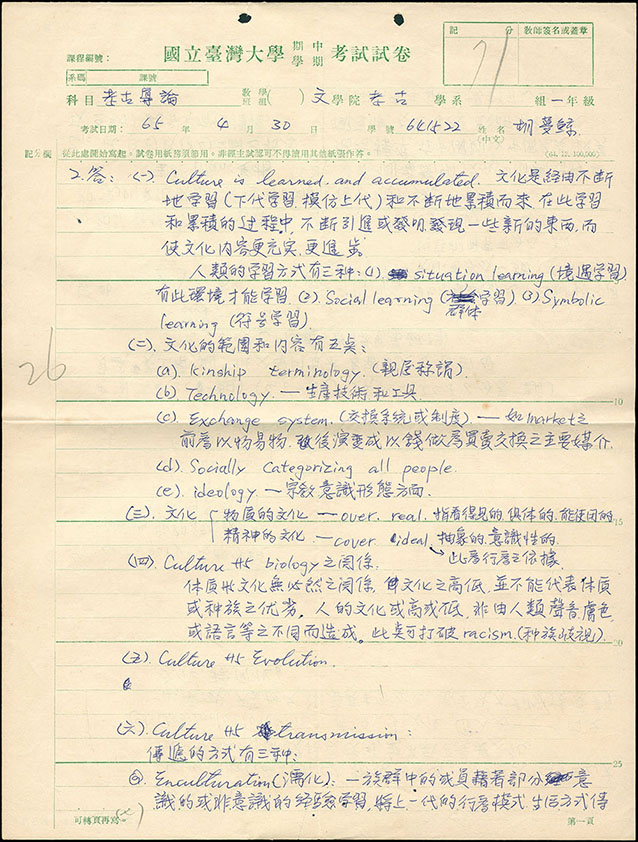 國立臺灣大學 期中學期 考試試卷
記分 教師簽名或蓋章
71
課程編號:
系碼 課號
科目 考古導論 數學班組 ( ) 文 學院 考古 學系 組 一 年級
考試日期: 65 年 4 月 30 日 學號 641522 姓名(中文) 胡
記分欄 從此處開始寫起。試卷用紙務須節用。非經主試認可不得續用其他紙張作答。 (64.12.100,500)
2. 答: (一) Culture is learned and accumulated. 文化是經由不斷
地學習(下代學習、模仿上代)和不斷地累積而來,在此學習
和累積的过程中,不断引進或發明、發現一些新的東西,而
使文化內容更充实、更進步。
人類的学習方式有三种: (1) situation learning (境遇学習)
有此環境才能学習. (2). Social learning (群体学習). (3) Symbolic
learning (符号学習).
26
(二). 文化的範圍和內容有五点:
(a). kinship terminology. (親屬称謂).
(b) Technology. — 生產技術和工具.
10
(c) Exchange system. (交換系統或制度) — 如market之
前為以物易物,後演变成以錢做為買賣交換之主要媒介.
(d). Socially categorizing all people.
(e). ideology. — 宗教意識形態方面.
(三). 文化 物质的文化 — over. real. 看得見的、俱体的、能使用的
15
精神的文化 — cover ideal. 抽象的、意識性的.
此為行為之依據.
(四). Culture 与 biology 之関係.
体质和文化無必然之関係,文化之高低,並不能代表体质
或种族之优劣。人的文化或高或低,非由人類聲音、膚色
或語言等之不同而造成。此点可打破 racism.(种族歧視).
20
(五). Culture 与 Evolution.
(六). Culture 与 transmission:
傳遞的方式有三种:
25
Enculturation (濡化): 一族群中的成員藉著部分意
識的或非意識的经驗学習,將上一代的行為模式、生活方式傳
可轉頁再寫
第一頁